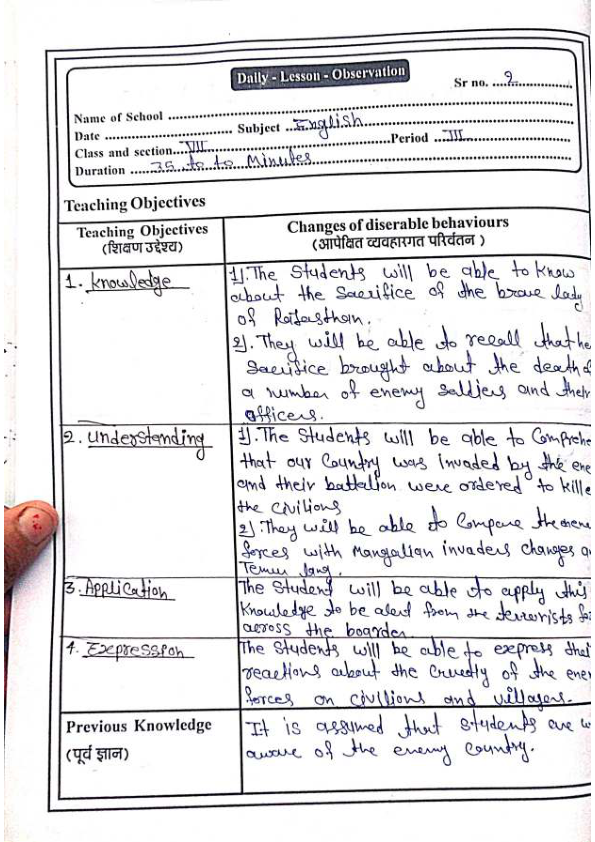 Daily - Lesson - Observation
Sr no. ....2..............
Name of School ..............................
Date .............................. Subject ...English..............
Class and section....VII..............................Period ...III..............
Duration ......35 to to Minutes..............................
Teaching Objectives
Teaching Objectives
(शिक्षण उद्देश्य)
Changes of diserable behaviours
(आपेक्षित व्यवहारगत परिर्वतन )
1. knowledge
1). The Students will be able to know
about the Sacrifice of the brave lady
of Rajasthan.
2). They will be able to recall that he
Sacrifice brought about the death o
a number of enemy Soldjers and their
officers.
2. understanding
1). The Students will be able to Comprehe
that our Country was invaded by the ene
and their battallon were ordered to kille
the civilions
2). They will be able to Compare the enem
forces with Mangalian invaders changes a
Temur lang.
3. Application
The Student will be able to apply this
Knowledge to be alert from the terrorists
across the boarder.
4. Expression
The Students will be able to express thei
reactions about the Cruelty of the ene
forces on civilions and villagers.
Previous Knowledge
(पूर्व ज्ञान)
It is assumed that students are w
aware of the enemy country.